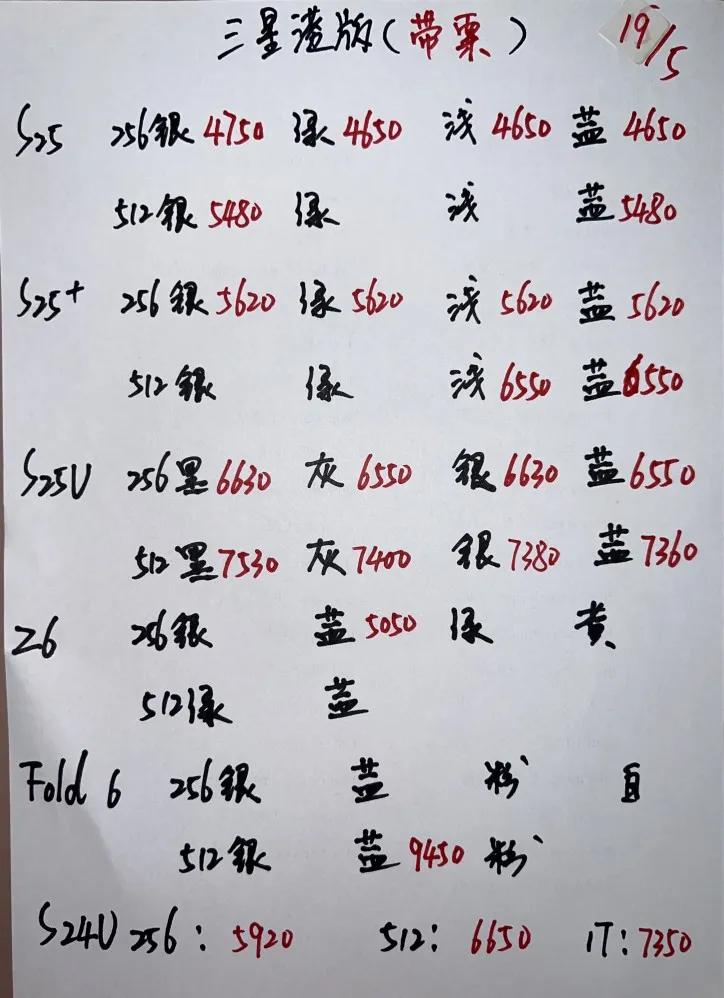 三星港版(带票)
19/5
S25 256銀4750 绿4650 浅4650 蓝4650
512銀5480 绿 浅 蓝5480
S25+ 256銀5620 绿5620 浅5620 蓝5620
512銀 绿 浅6550 蓝6550
S25U 256黑6630 灰6550 銀6630 蓝6550
512黑7530 灰7400 銀7380 蓝7360
Z6 256銀 蓝5050 绿 黄
512绿 蓝
Fold 6 256銀 蓝 粉 白
512銀 蓝9450 粉
S24U 256:5920 512:6650 1T:7350